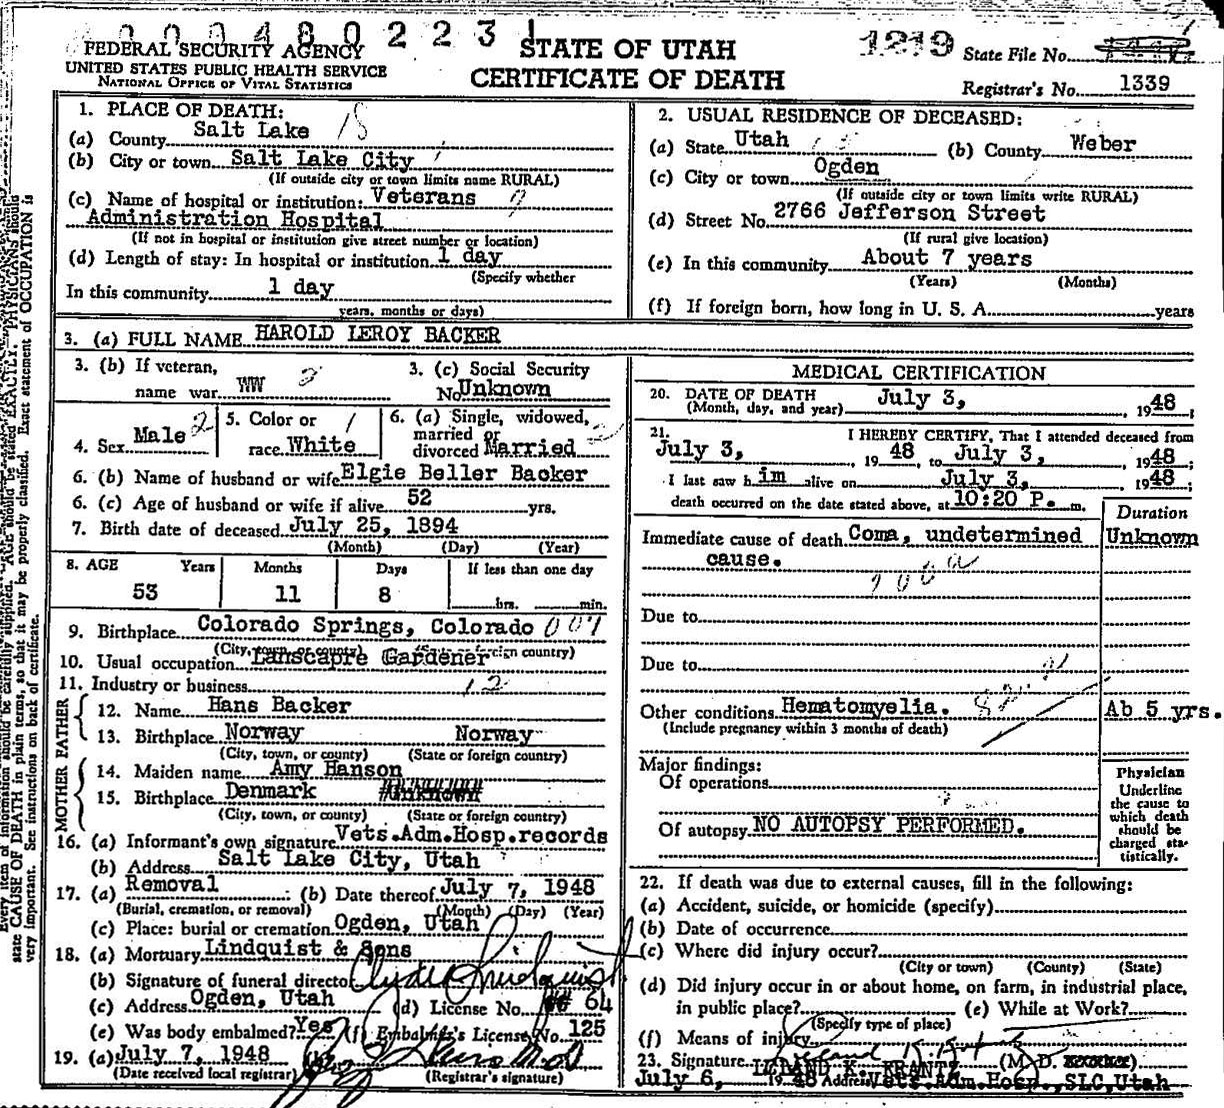 000480223 1
FEDERAL SECURITY AGENCY
UNITED STATES PUBLIC HEALTH SERVICE
NATIONAL OFFICE OF VITAL STATISTICS
STATE OF UTAH
CERTIFICATE OF DEATH
1219 State File No.
Registrar's No. 1339
1. PLACE OF DEATH:
(a) County Salt Lake 18
(b) City or town Salt Lake City
(If outside city or town limits name RURAL)
(c) Name of hospital or institution: Veterans
Administration Hospital
(If not in hospital or institution give street number or location)
(d) Length of stay: In hospital or institution 1 day
(Specify whether
In this community 1 day
years, months or days)
2. USUAL RESIDENCE OF DECEASED:
(a) State Utah (b) County Weber
(c) City or town Ogden
(If outside city or town limits write RURAL)
(d) Street No. 2766 Jefferson Street
(If rural give location)
(e) In this community About 7 years
(Years) (Months)
(f) If foreign born, how long in U. S. A. years
3. (a) FULL NAME HAROLD LEROY BACKER
3. (b) If veteran,
name war WW 2
3. (c) Social Security
No. Unknown
4. Sex Male 2
5. Color or 1
race White
6. (a) Single, widowed,
married or
divorced Married
6. (b) Name of husband or wife Elgie Beller Backer
6. (c) Age of husband or wife if alive 52 yrs.
7. Birth date of deceased July 25, 1894
(Month) (Day) (Year)
8. AGE Years Months Days If less than one day
53 11 8 hrs. min.
9. Birthplace Colorado Springs, Colorado
(City, town, or county) (State or foreign country)
10. Usual occupation Lanscapre Gardener
11. Industry or business 12
FATHER
12. Name Hans Backer
13. Birthplace Norway Norway
(City, town, or county) (State or foreign country)
MOTHER
14. Maiden name Amy Hanson
15. Birthplace Denmark Unknown
(City, town, or county) (State or foreign country)
16. (a) Informant's own signature Vets.Adm.Hosp.records
(b) Address Salt Lake City, Utah
17. (a) Removal (b) Date thereof July 7, 1948
(Burial, cremation, or removal) (Month) (Day) (Year)
(c) Place: burial or cremation Ogden, Utah
18. (a) Mortuary Lindquist & Sons
(b) Signature of funeral director Clyde Lindquist
(c) Address Ogden, Utah (d) License No. 64
(e) Was body embalmed? Yes (f) Embalmer's License No. 125
19. (a) July 7, 1948 (b)
(Date received local registrar) (Registrar's signature)
MEDICAL CERTIFICATION
20. DATE OF DEATH July 3, 1948
(Month, day, and year)
21. I HEREBY CERTIFY, That I attended deceased from
July 3, 1948, to July 3, 1948;
I last saw him alive on July 3, 1948;
death occurred on the date stated above, at 10:20 P. m.
Duration
Immediate cause of death Coma, undetermined Unknown
cause.
Due to
Due to
Other conditions Hematomyelia. Ab 5 yrs.
(Include pregnancy within 3 months of death)
Major findings:
Of operations
Of autopsy NO AUTOPSY PERFORMED.
Physician
Underline
the cause to
which death
should be
charged sta-
tistically.
22. If death was due to external causes, fill in the following:
(a) Accident, suicide, or homicide (specify)
(b) Date of occurrence
(c) Where did injury occur?
(City or town) (County) (State)
(d) Did injury occur in or about home, on farm, in industrial place,
in public place? (e) While at Work?
(Specify type of place)
(f) Means of injury
23. Signature (M. D.
LELAND K. KRANTZ
July 6, 1948 Address Vets.Adm.Hosp.,SLC,Utah
state CAUSE OF DEATH in plain terms, so that it may be properly classified. Exact statement of OCCUPATION is
very important. See instructions on back of certificate.